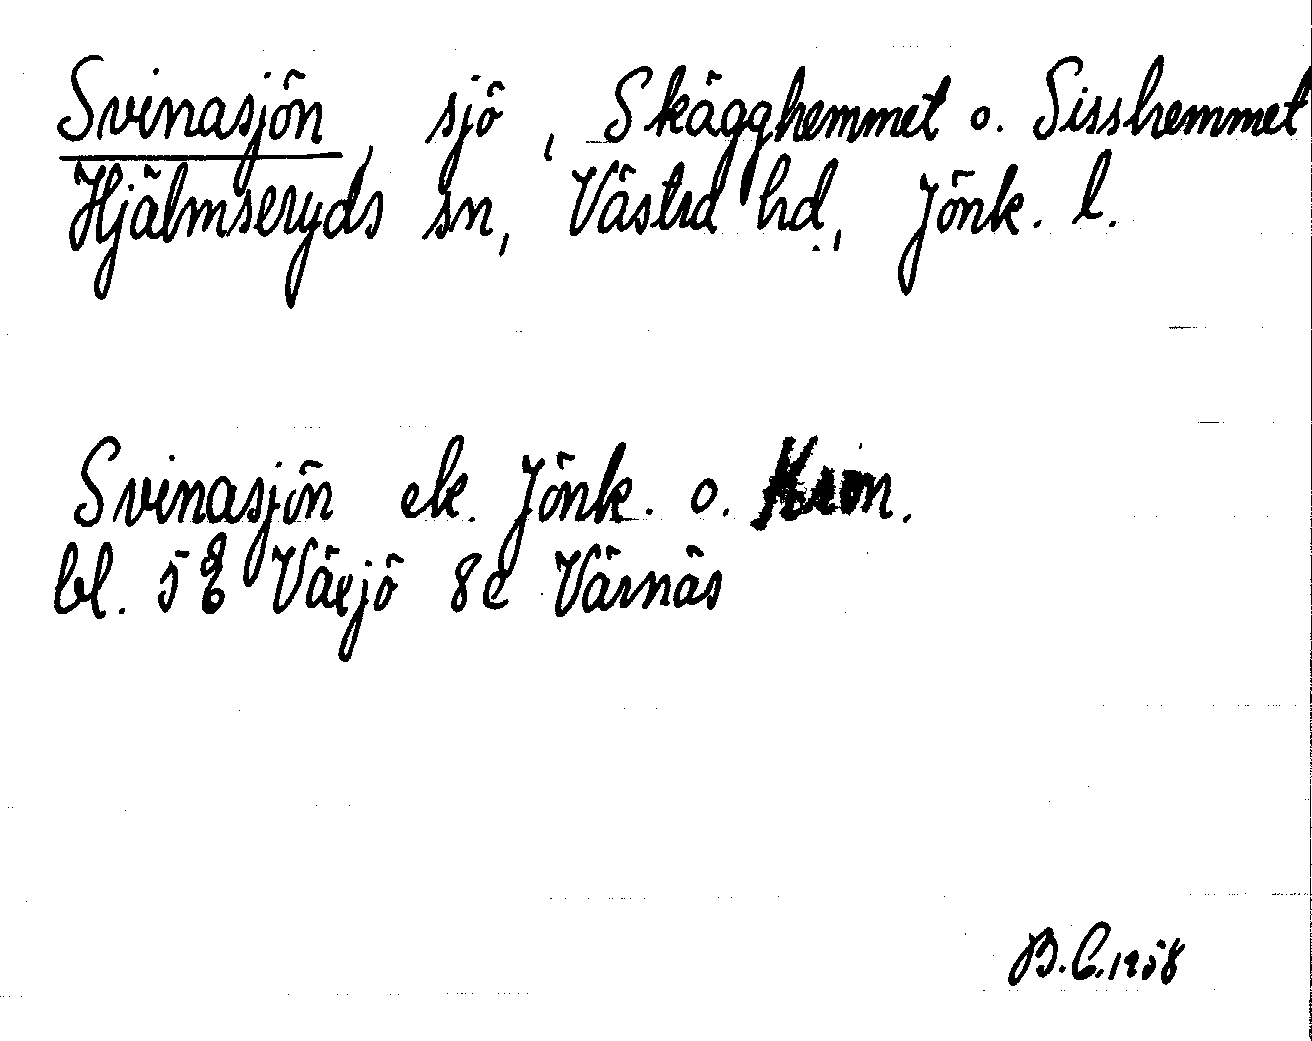 Svinasjön, sjö, Skägghemmet o. Sisshemmet
Hjälmseryds sn, Västra hd, Jönk. l.
Svinasjön ek. Jönk. o. Kron.
bl. 5 E Växjö 8c Värnäs
B.C. 1958